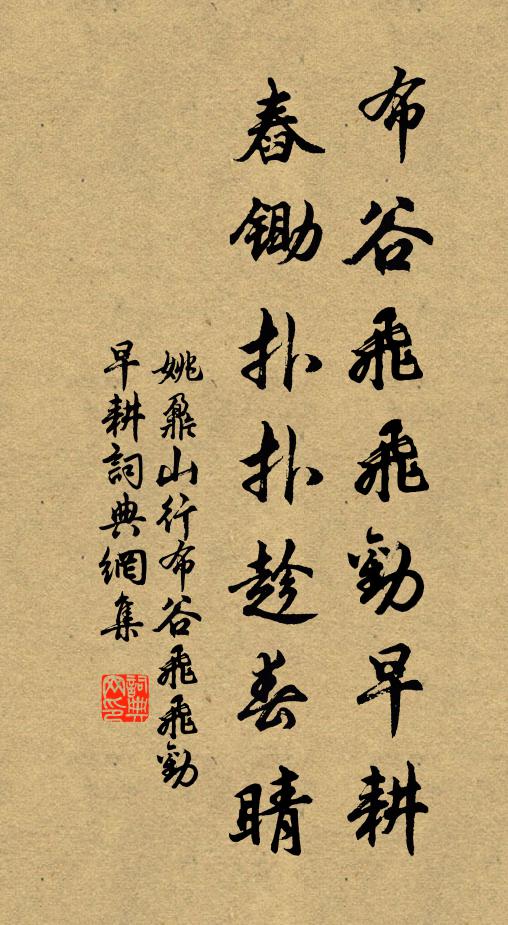 布谷飛飛勸早耕
舂鋤扑扑趁春晴
姚鼐山行布谷飛飛勸
早耕詞典網集